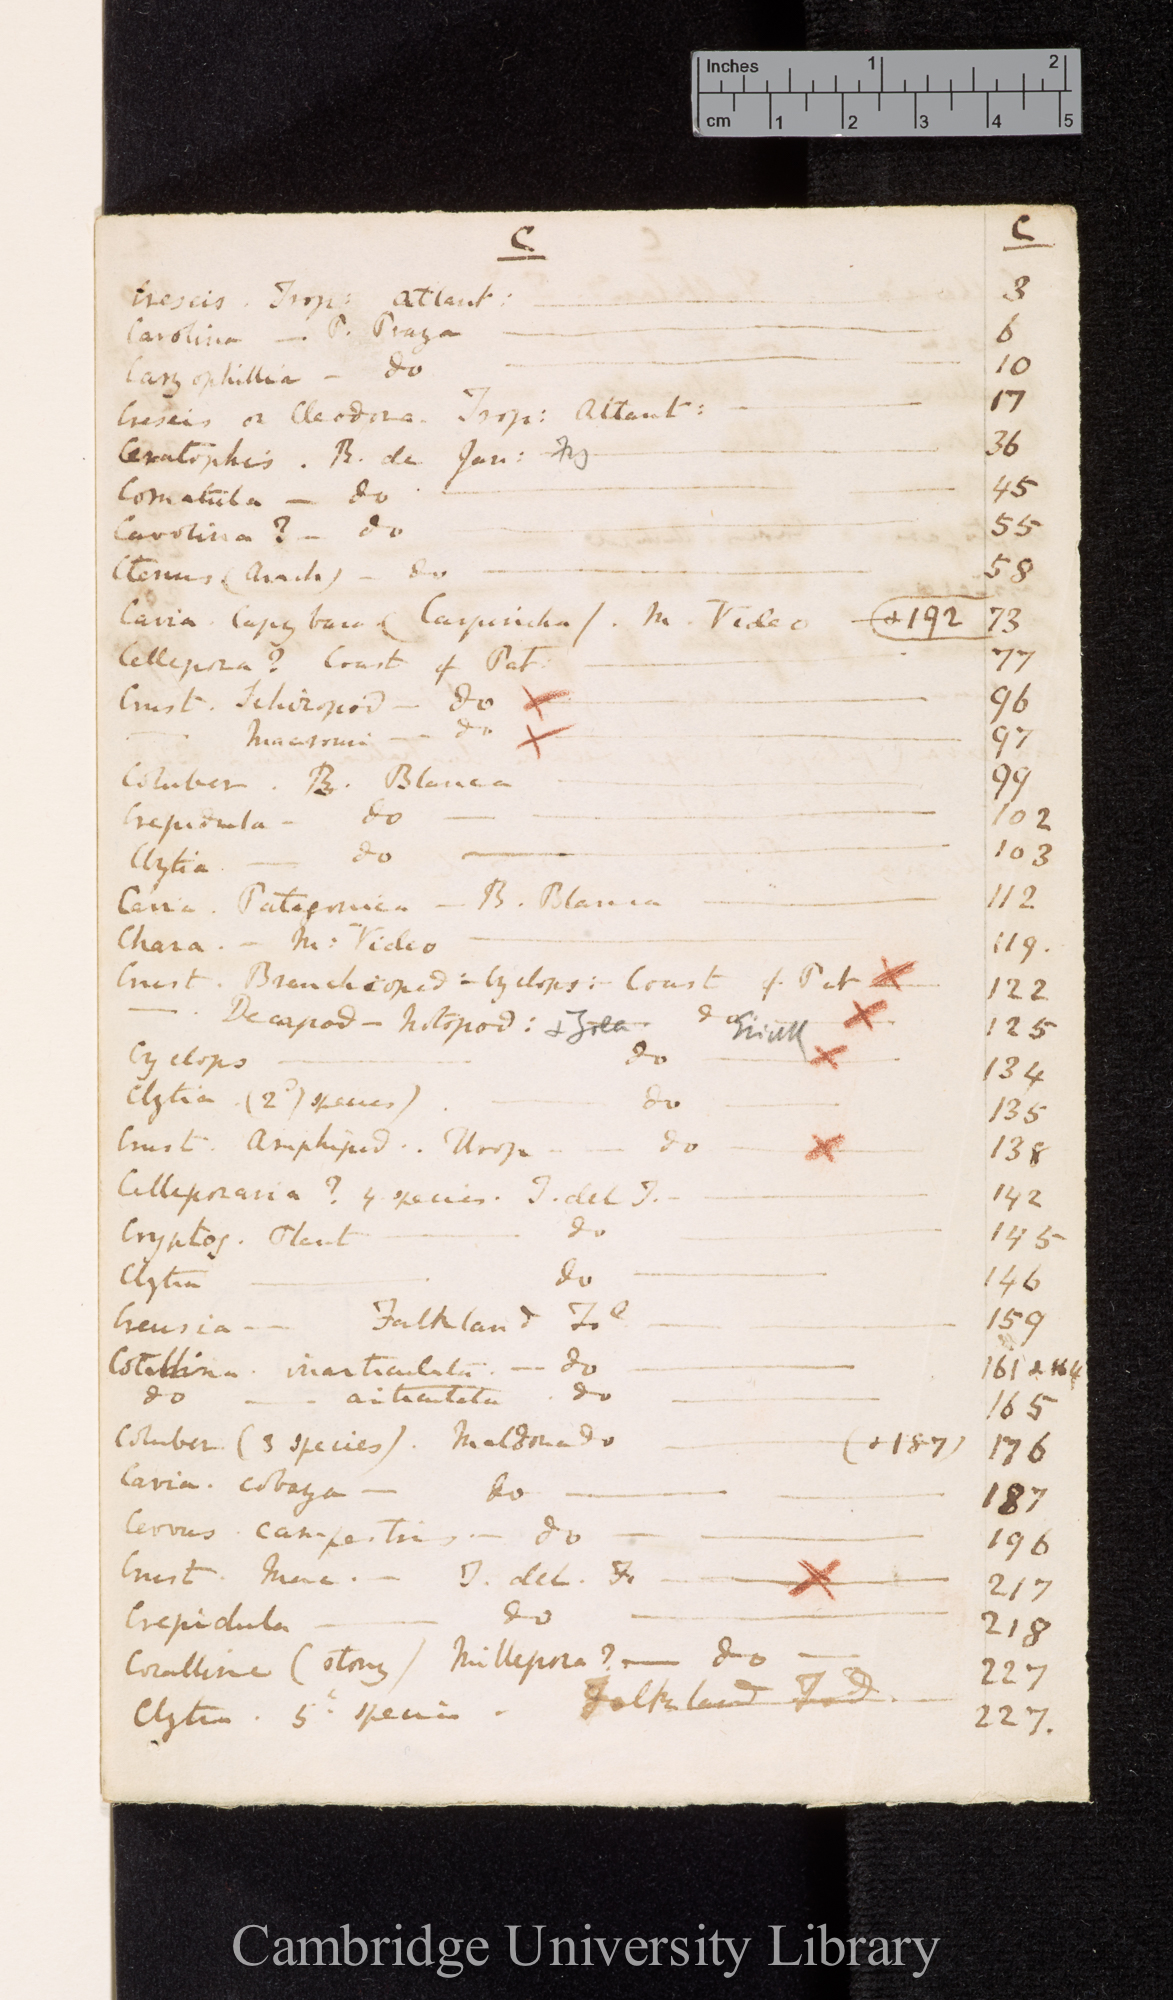 Inches 1 2
cm 1 2 3 4 5
C C
Creseis . Trop: Atlant: 3
Cavolina — P. Praya 6
Caryophillia — do 10
Creseis or Cleodora. Trop: Atlant: 17
Ceratophis . R. de Jan: 36
Comatula — do 45
Cavolina ? — do 55
Ctenus (Arach) — do 58
Cavia . Capybara (Carpincha) . M. Video (+192 73
Cellepora ? Coast of Pat: 77
Crust. Schizopod — do 96
— Macrouri — do 97
Coluber . B. Blanca 99
Crepidula — do 102
Clytia — do 103
Cavia . Patagonica — B. Blanca 112
Chara . — M: Video 119.
Crust. Branchiopod: Cyclops: — Coast of Pat 122
— . Decapod — Notopod: + Zoea do 125
Cyclops do 134
Clytia . (2d) species) do 135
Crust. Amphipod . . Urop — do 138
Celleporaria ? 4 species. T. del F. — 142
Cryptog. Plant do 145
Clytia do 146
Creusia — Falkland Isd 159
Corallina . inarticulata . — do 161 & 164
do — articulata . do 165
Coluber (3 species) . Maldonado (+187) 176
Cavia . cobaya — do 187
Cervus . campestris — do 196
Crust. Mac . — T. del . F. 217
Crepidula do 218
Coralline (stony) Millepora ? — do — 227
Clytia . 5 species . Falkland Isd. 227.
Cambridge University Library